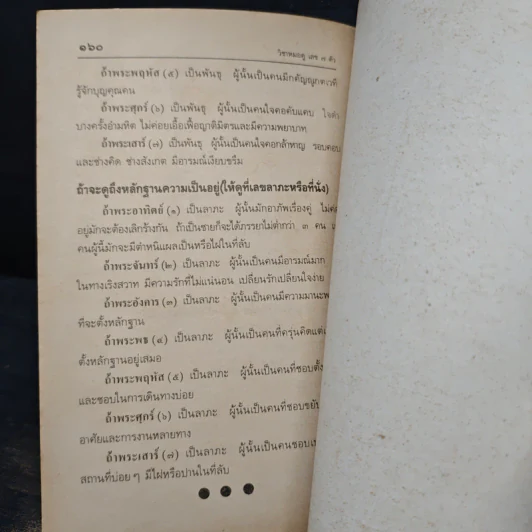 ๑๖๐ วิชาหมอดู เลข ๗ ตัว
ถ้าพระพฤหัส (๕) เป็นพันธุ ผู้นั้นเป็นคนมีกตัญญูกตเวที
รู้จักบุญคุณคน
ถ้าพระศุกร์ (๖) เป็นพันธุ ผู้นั้นเป็นคนใจคอคับแคบ ใจดำ
บางครั้งอำมหิต ไม่ค่อยเอื้อเฟื้อญาติมิตรและมีความพยาบาท
ถ้าพระเสาร์ (๗) เป็นพันธุ ผู้นั้นเป็นคนใจคอกล้าหาญ รอบคอบ
และช่างคิด ช่างสังเกต มีอารมณ์เงียบขรึม
ถ้าจะดูถึงหลักฐานความเป็นอยู่(ให้ดูที่เลขลาภะหรือที่นั่ง)
ถ้าพระอาทิตย์ (๑) เป็นลาภะ ผู้นั้นมักอาภัพเรื่องคู่
อยู่มักจะต้องเลิกร้างกัน ถ้าเป็นชายก็จะได้ภรรยาไม่ต่ำกว่า ๓ คน
คนผู้นี้มักจะมีตำหนิแผลเป็นหรือไฝในที่ลับ
ถ้าพระจันทร์ (๒) เป็นลาภะ ผู้นั้นเป็นคนมีอารมณ์มาก
ในทางเริงสวาท มีความรักที่ไม่แน่นอน เปลี่ยนรักเปลี่ยนใจง่าย
ถ้าพระอังคาร (๓) เป็นลาภะ ผู้นั้นเป็นคนมีความมานะ
ที่จะตั้งหลักฐาน
ถ้าพระพุธ (๔) เป็นลาภะ ผู้นั้นเป็นคนที่ครุ่นคิดแต่
ตั้งหลักฐานอยู่เสมอ
ถ้าพระพฤหัส (๕) เป็นลาภะ ผู้นั้นเป็นคนที่ชอบตั้ง
และชอบในการเดินทางบ่อย
ถ้าพระศุกร์ (๖) เป็นลาภะ ผู้นั้นเป็นคนที่ชอบ
อาศัยและการงานหลายทาง
ถ้าพระเสาร์ (๗) เป็นลาภะ ผู้นั้นเป็นคนชอบ
สถานที่บ่อย ๆ มีไฝหรือปานในที่ลับ